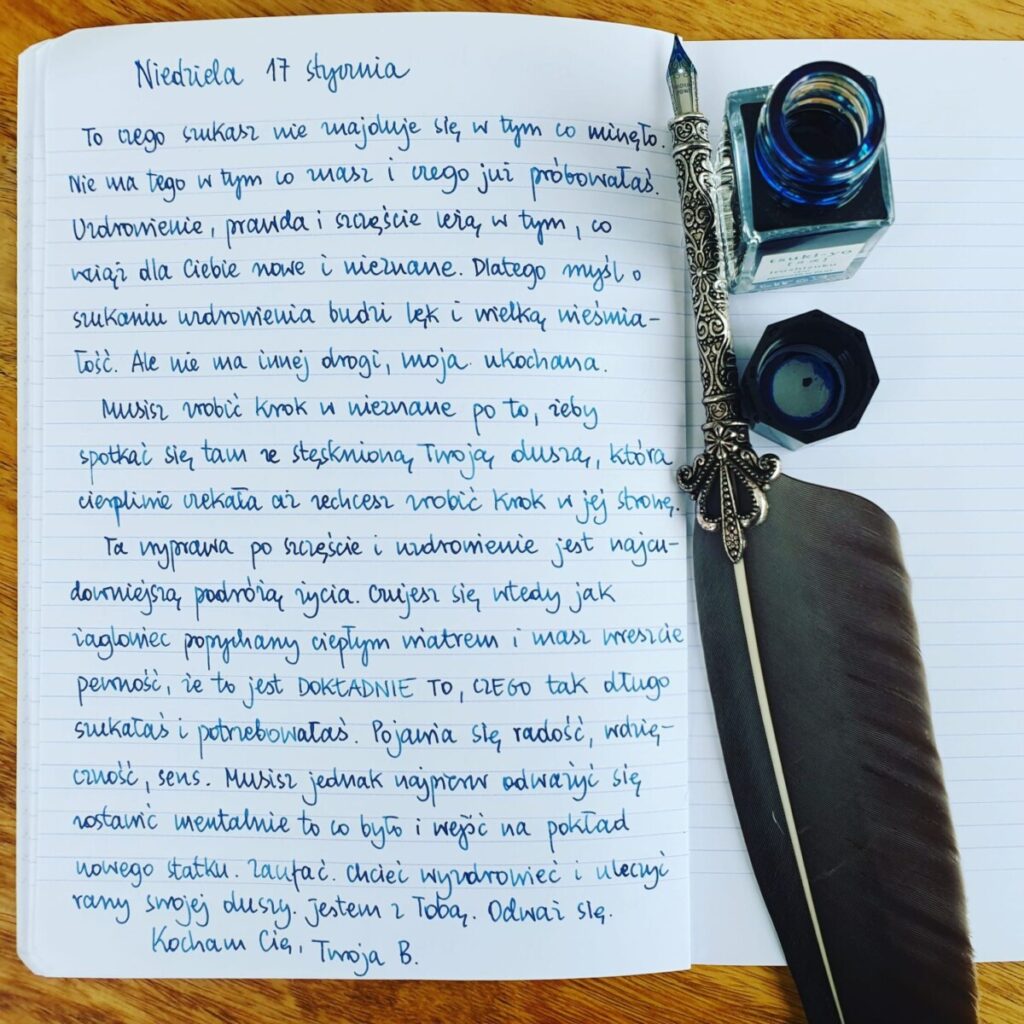 Niedziela 17 stycznia
To czego szukasz nie znajduje się w tym co minęło.
Nie ma tego w tym co znasz i czego już próbowałaś.
Uzdrowienie, prawda i szczęście leżą w tym, co
wciąż dla Ciebie nowe i nieznane. Dlatego myśl o
szukaniu uzdrowienia budzi lęk i wielką nieśmia-
łość. Ale nie ma innej drogi, moja ukochana.
Musisz zrobić krok w nieznane po to, żeby
spotkać się tam ze stęsknioną Twoją duszą, która
cierpliwie czekała aż zechcesz zrobić krok w jej stronę.
Ta wyprawa po szczęście i uzdrowienie jest najcu-
downiejszą podróżą życia. Czujesz się wtedy jak
żaglowiec popychany ciepłym wiatrem i masz wreszcie
pewność, że to jest DOKŁADNIE TO, CZEGO tak długo
szukałaś i potrzebowałaś. Pojawia się radość, wdzię-
czność, sens. Musisz jednak najpierw odważyć się
zostawić mentalnie to co było i wejść na pokład
nowego statku. Zaufać. Chcieć wyzdrowieć i uleczyć
rany swojej duszy. Jestem z Tobą. Odważ się.
Kocham Cię, Twoja B.
tsuki-yo